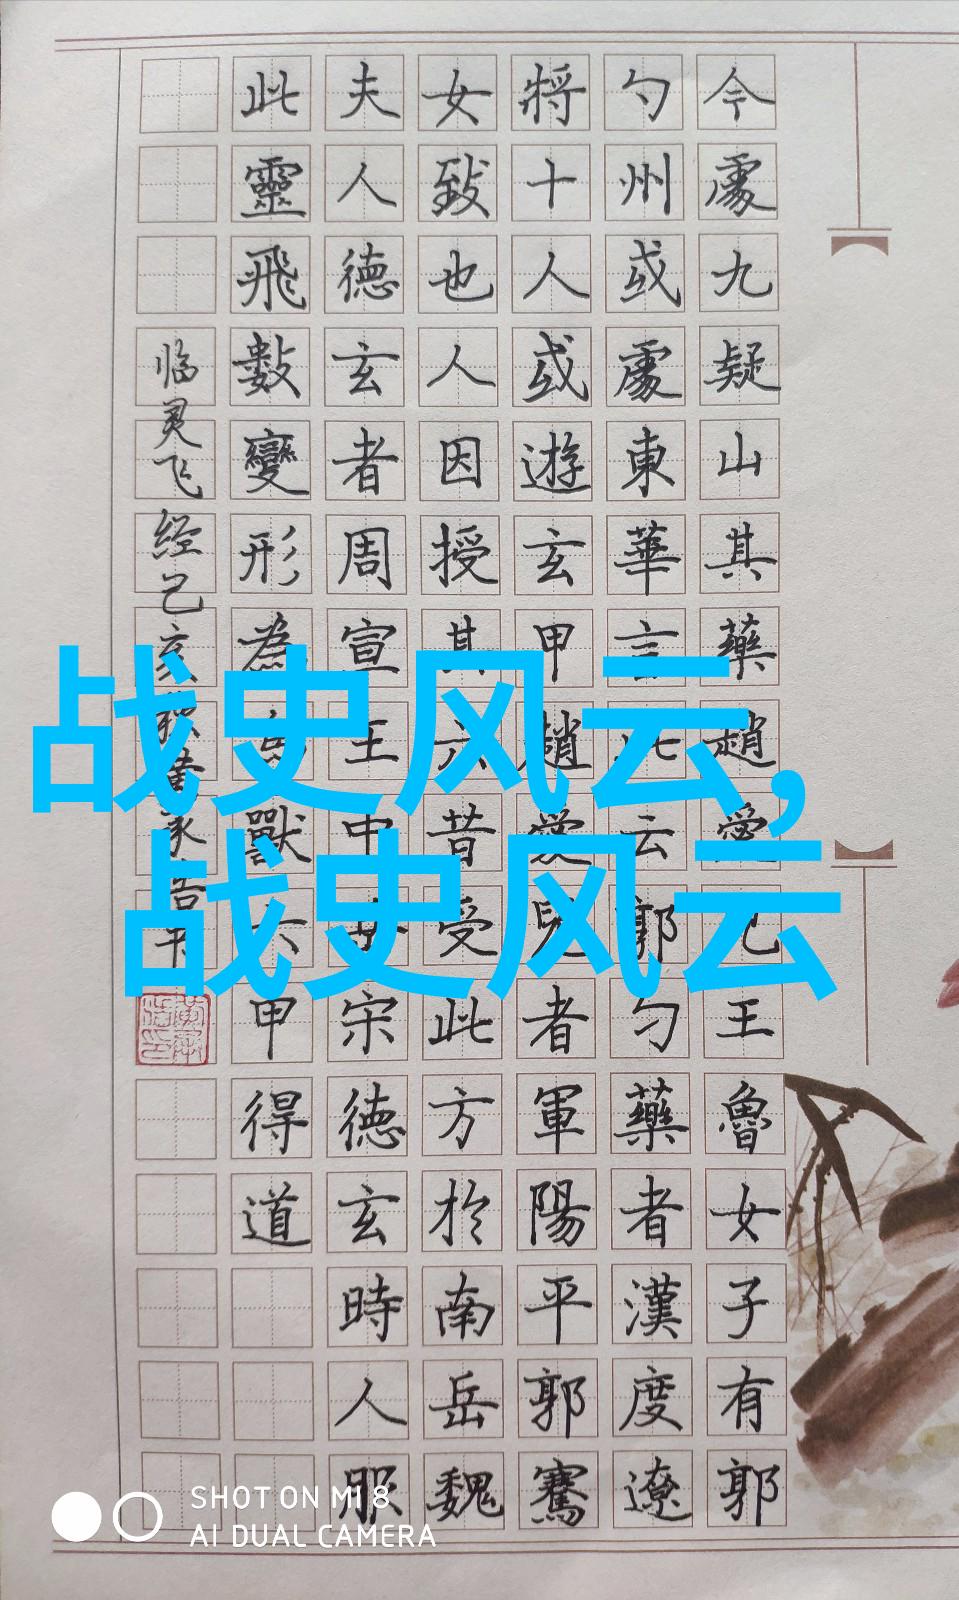 今處九疑山其藥趙愛兒王魯女子有郭
勺州或處東華言此云郭勺藥者漢度遼
將十人或遊玄甲趙愛兒者軍陽平郭騫
女致也人因授其六昔受此方於南岳魏
夫人德玄者周宣王中女宋德玄時人服
此靈飛數變形為鳥獸六甲得道
临灵飞经己亥
战史风云,
战史风云
SHOT ON MI 8
AI DUAL CAMERA